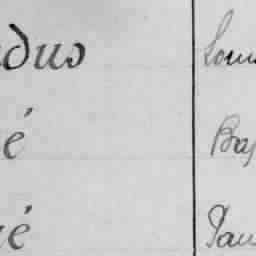 dus Lou
é Bap
é Pau